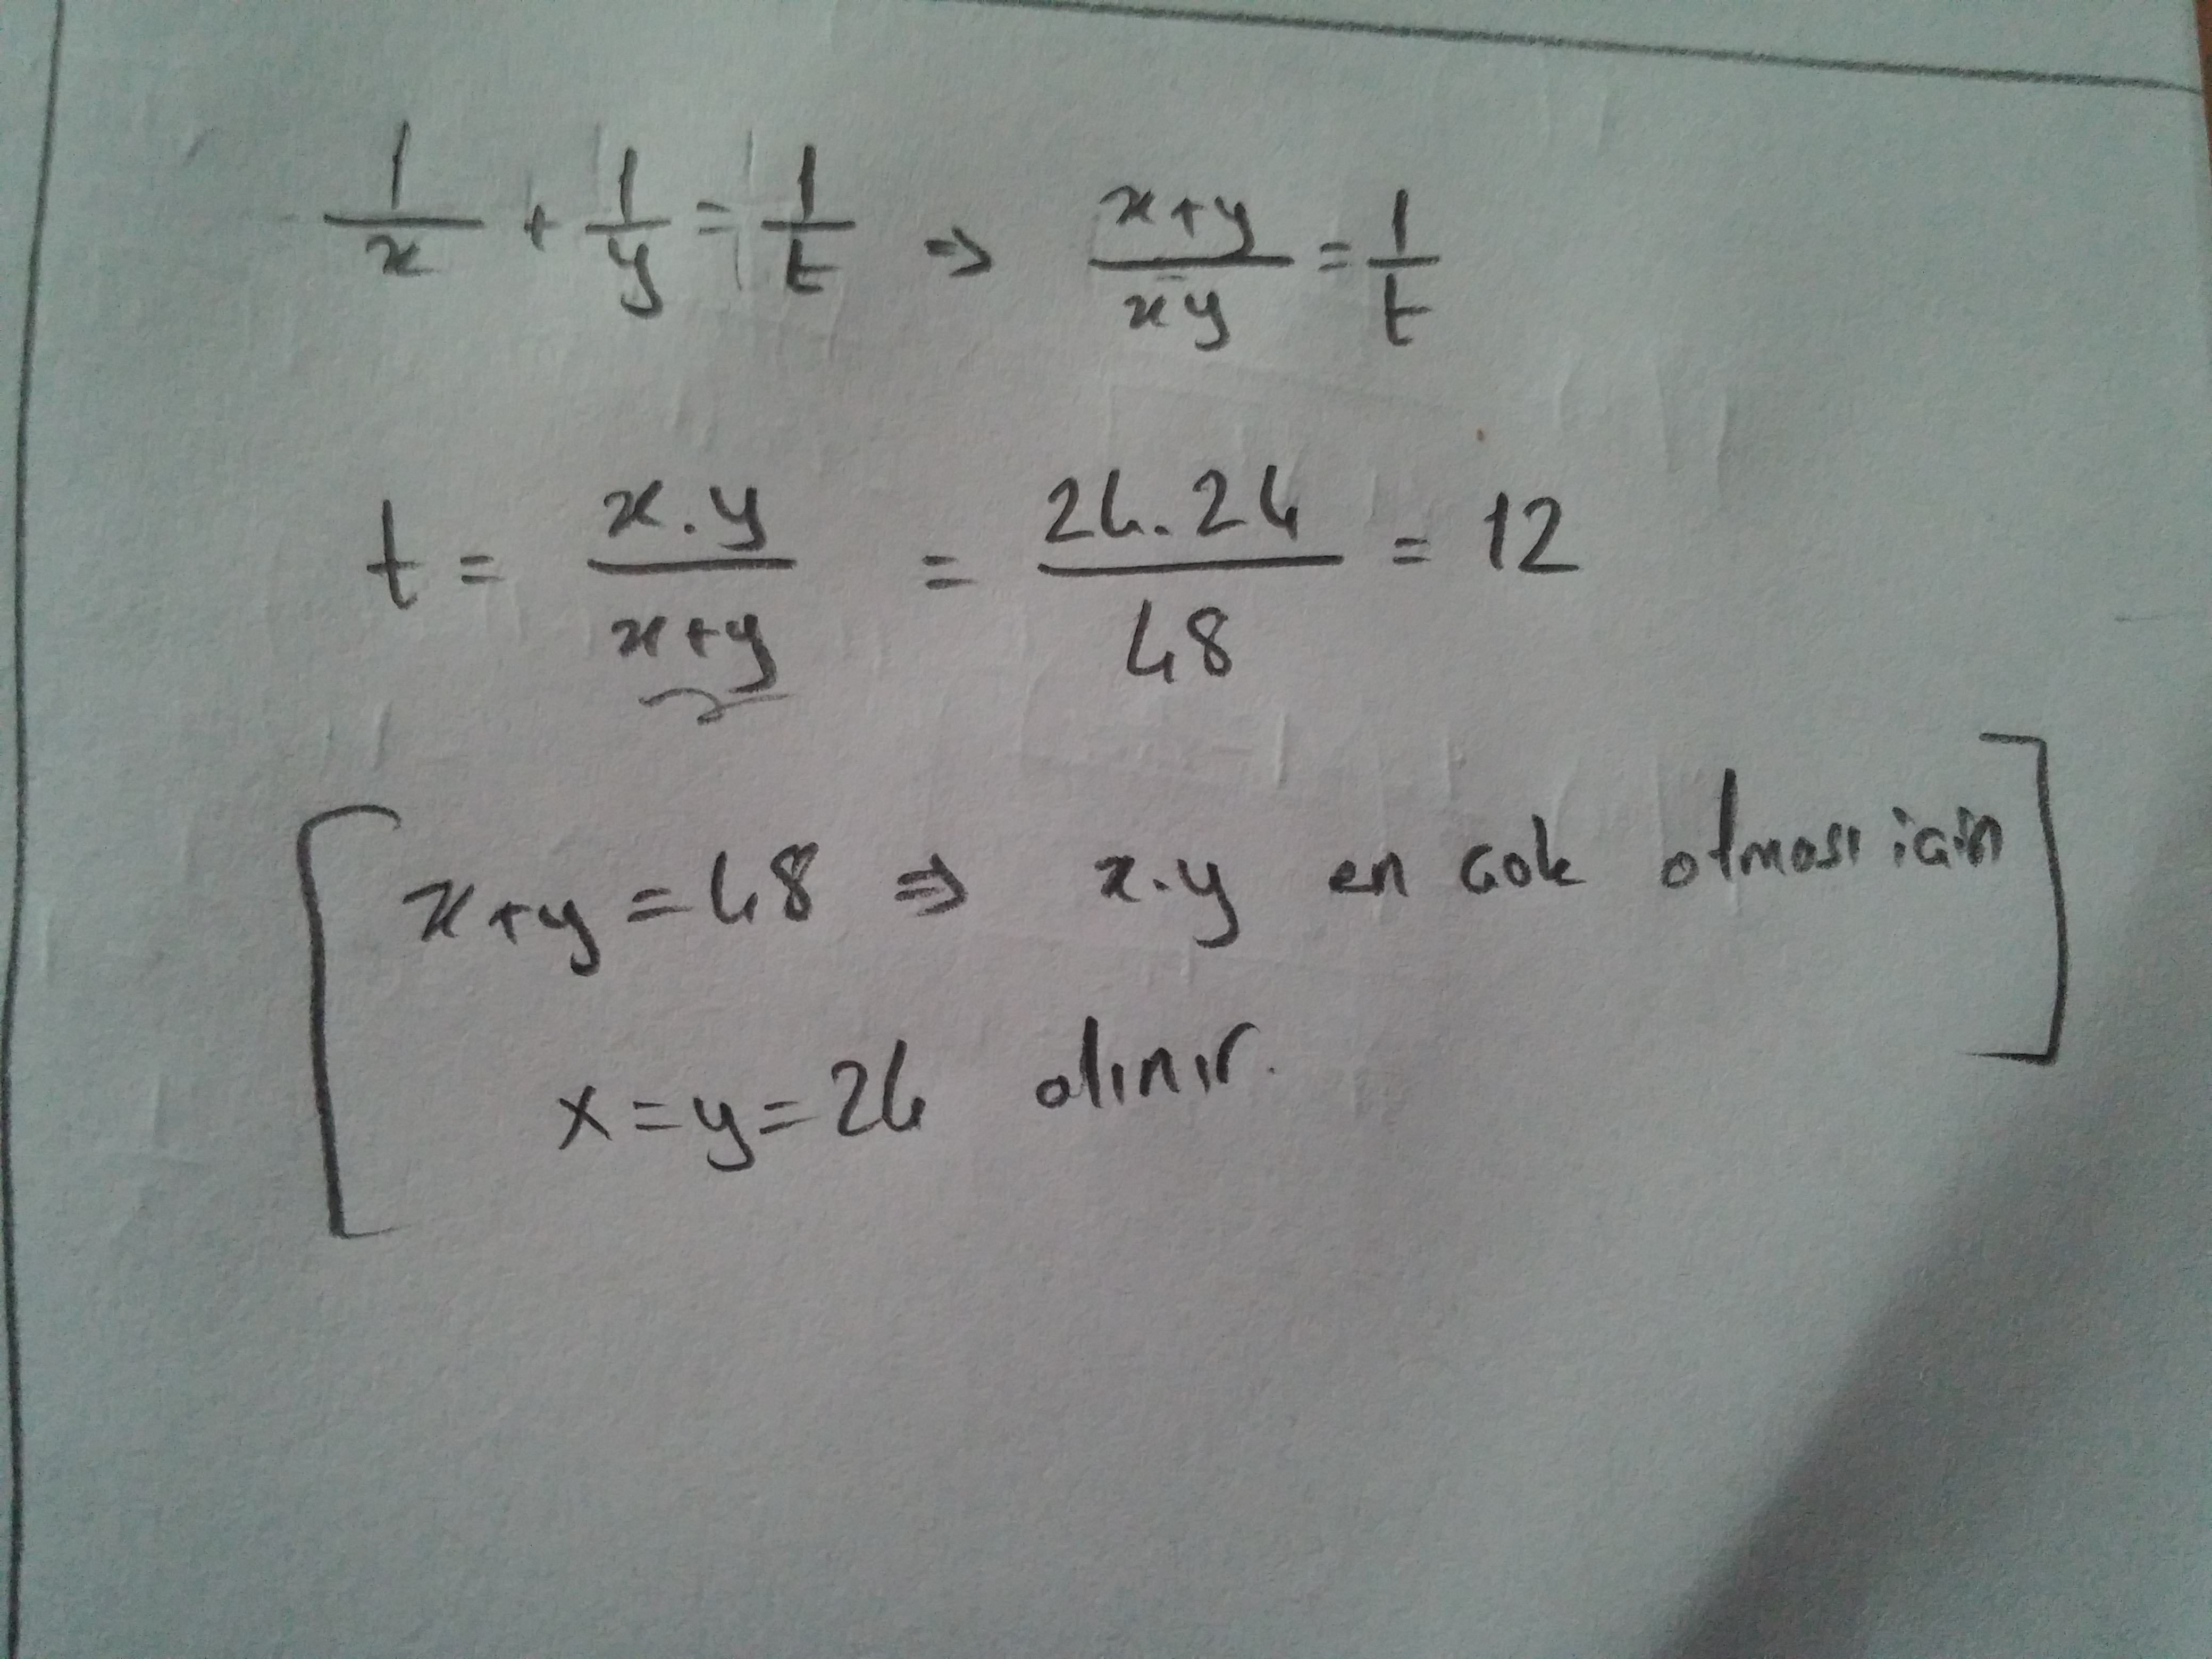 1/x + 1/y = 1/t ⇒ x+y/xy = 1/t
t = x.y/x+y = 24.24/48 = 12
x+y=48 ⇒ x.y en çok olması için
x=y=24 alınır.